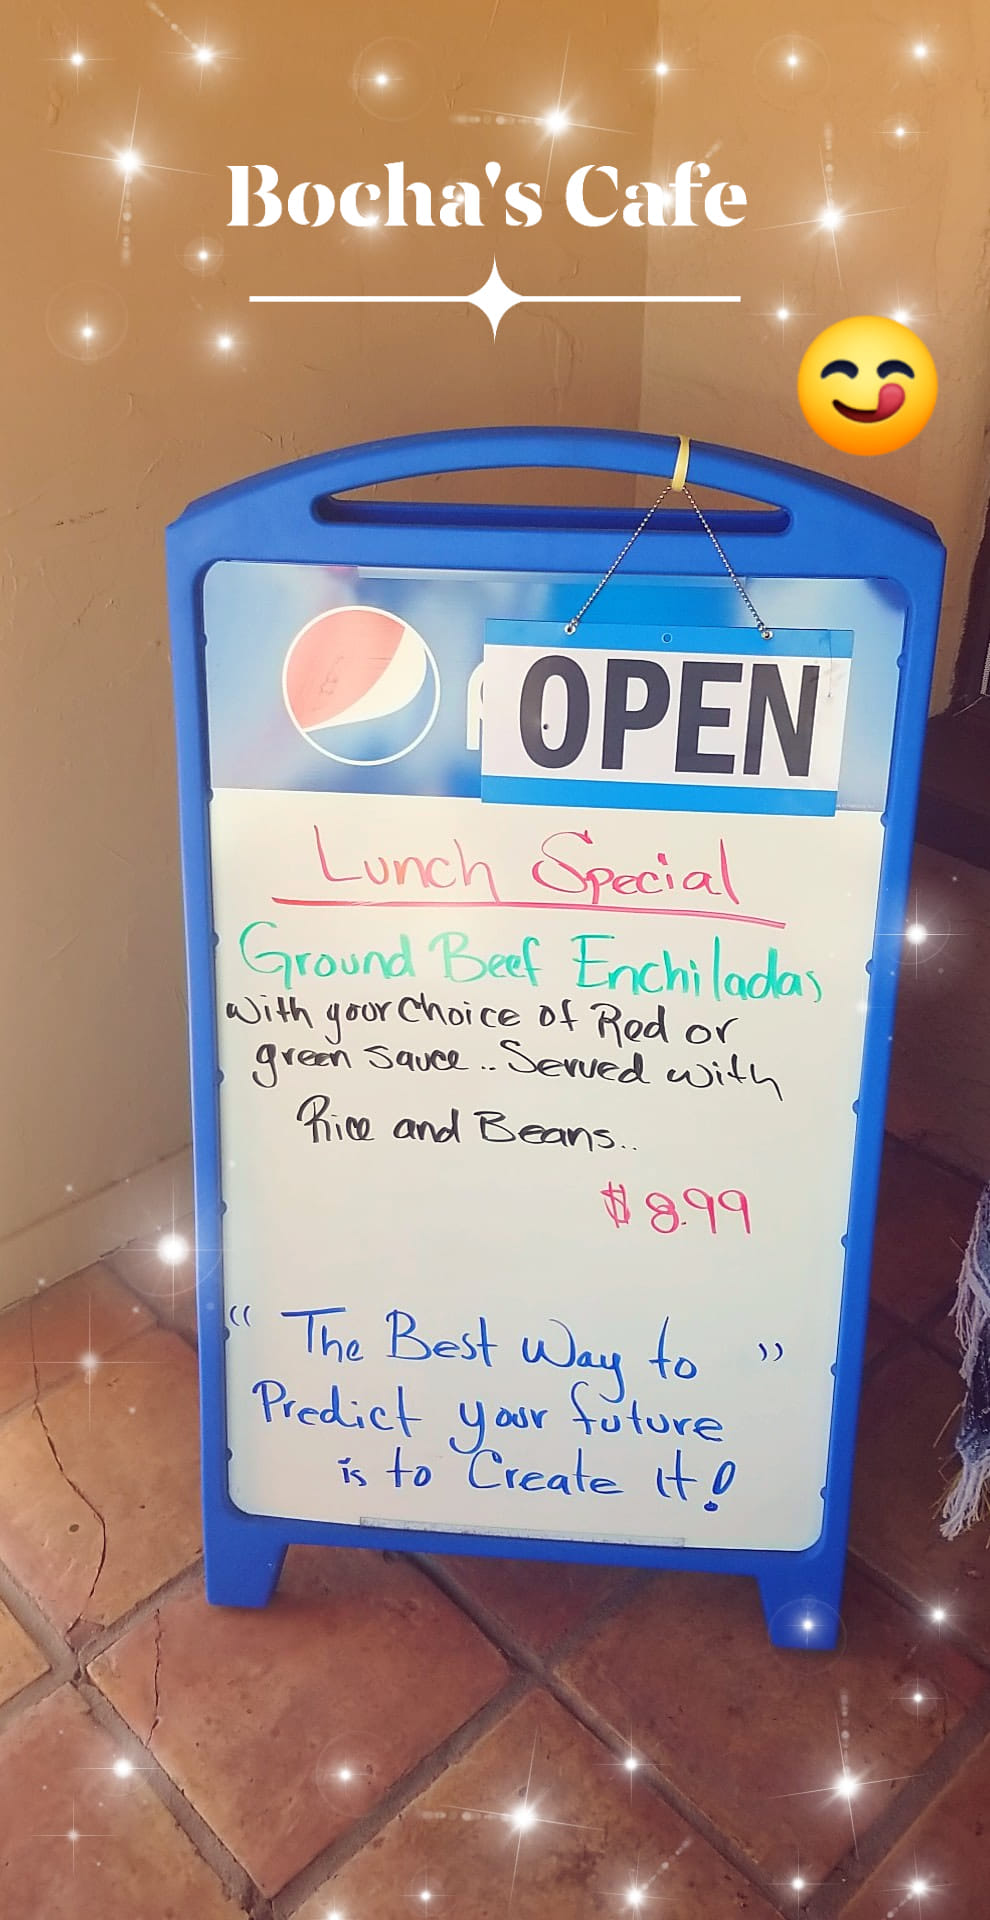 Bocha's Cafe
OPEN
Lunch Special
Ground Beef Enchiladas
with your choice of Red or
green sauce.. Served with
Rice and Beans..
$8.99
“ The Best Way to ”
Predict your future
is to Create It!